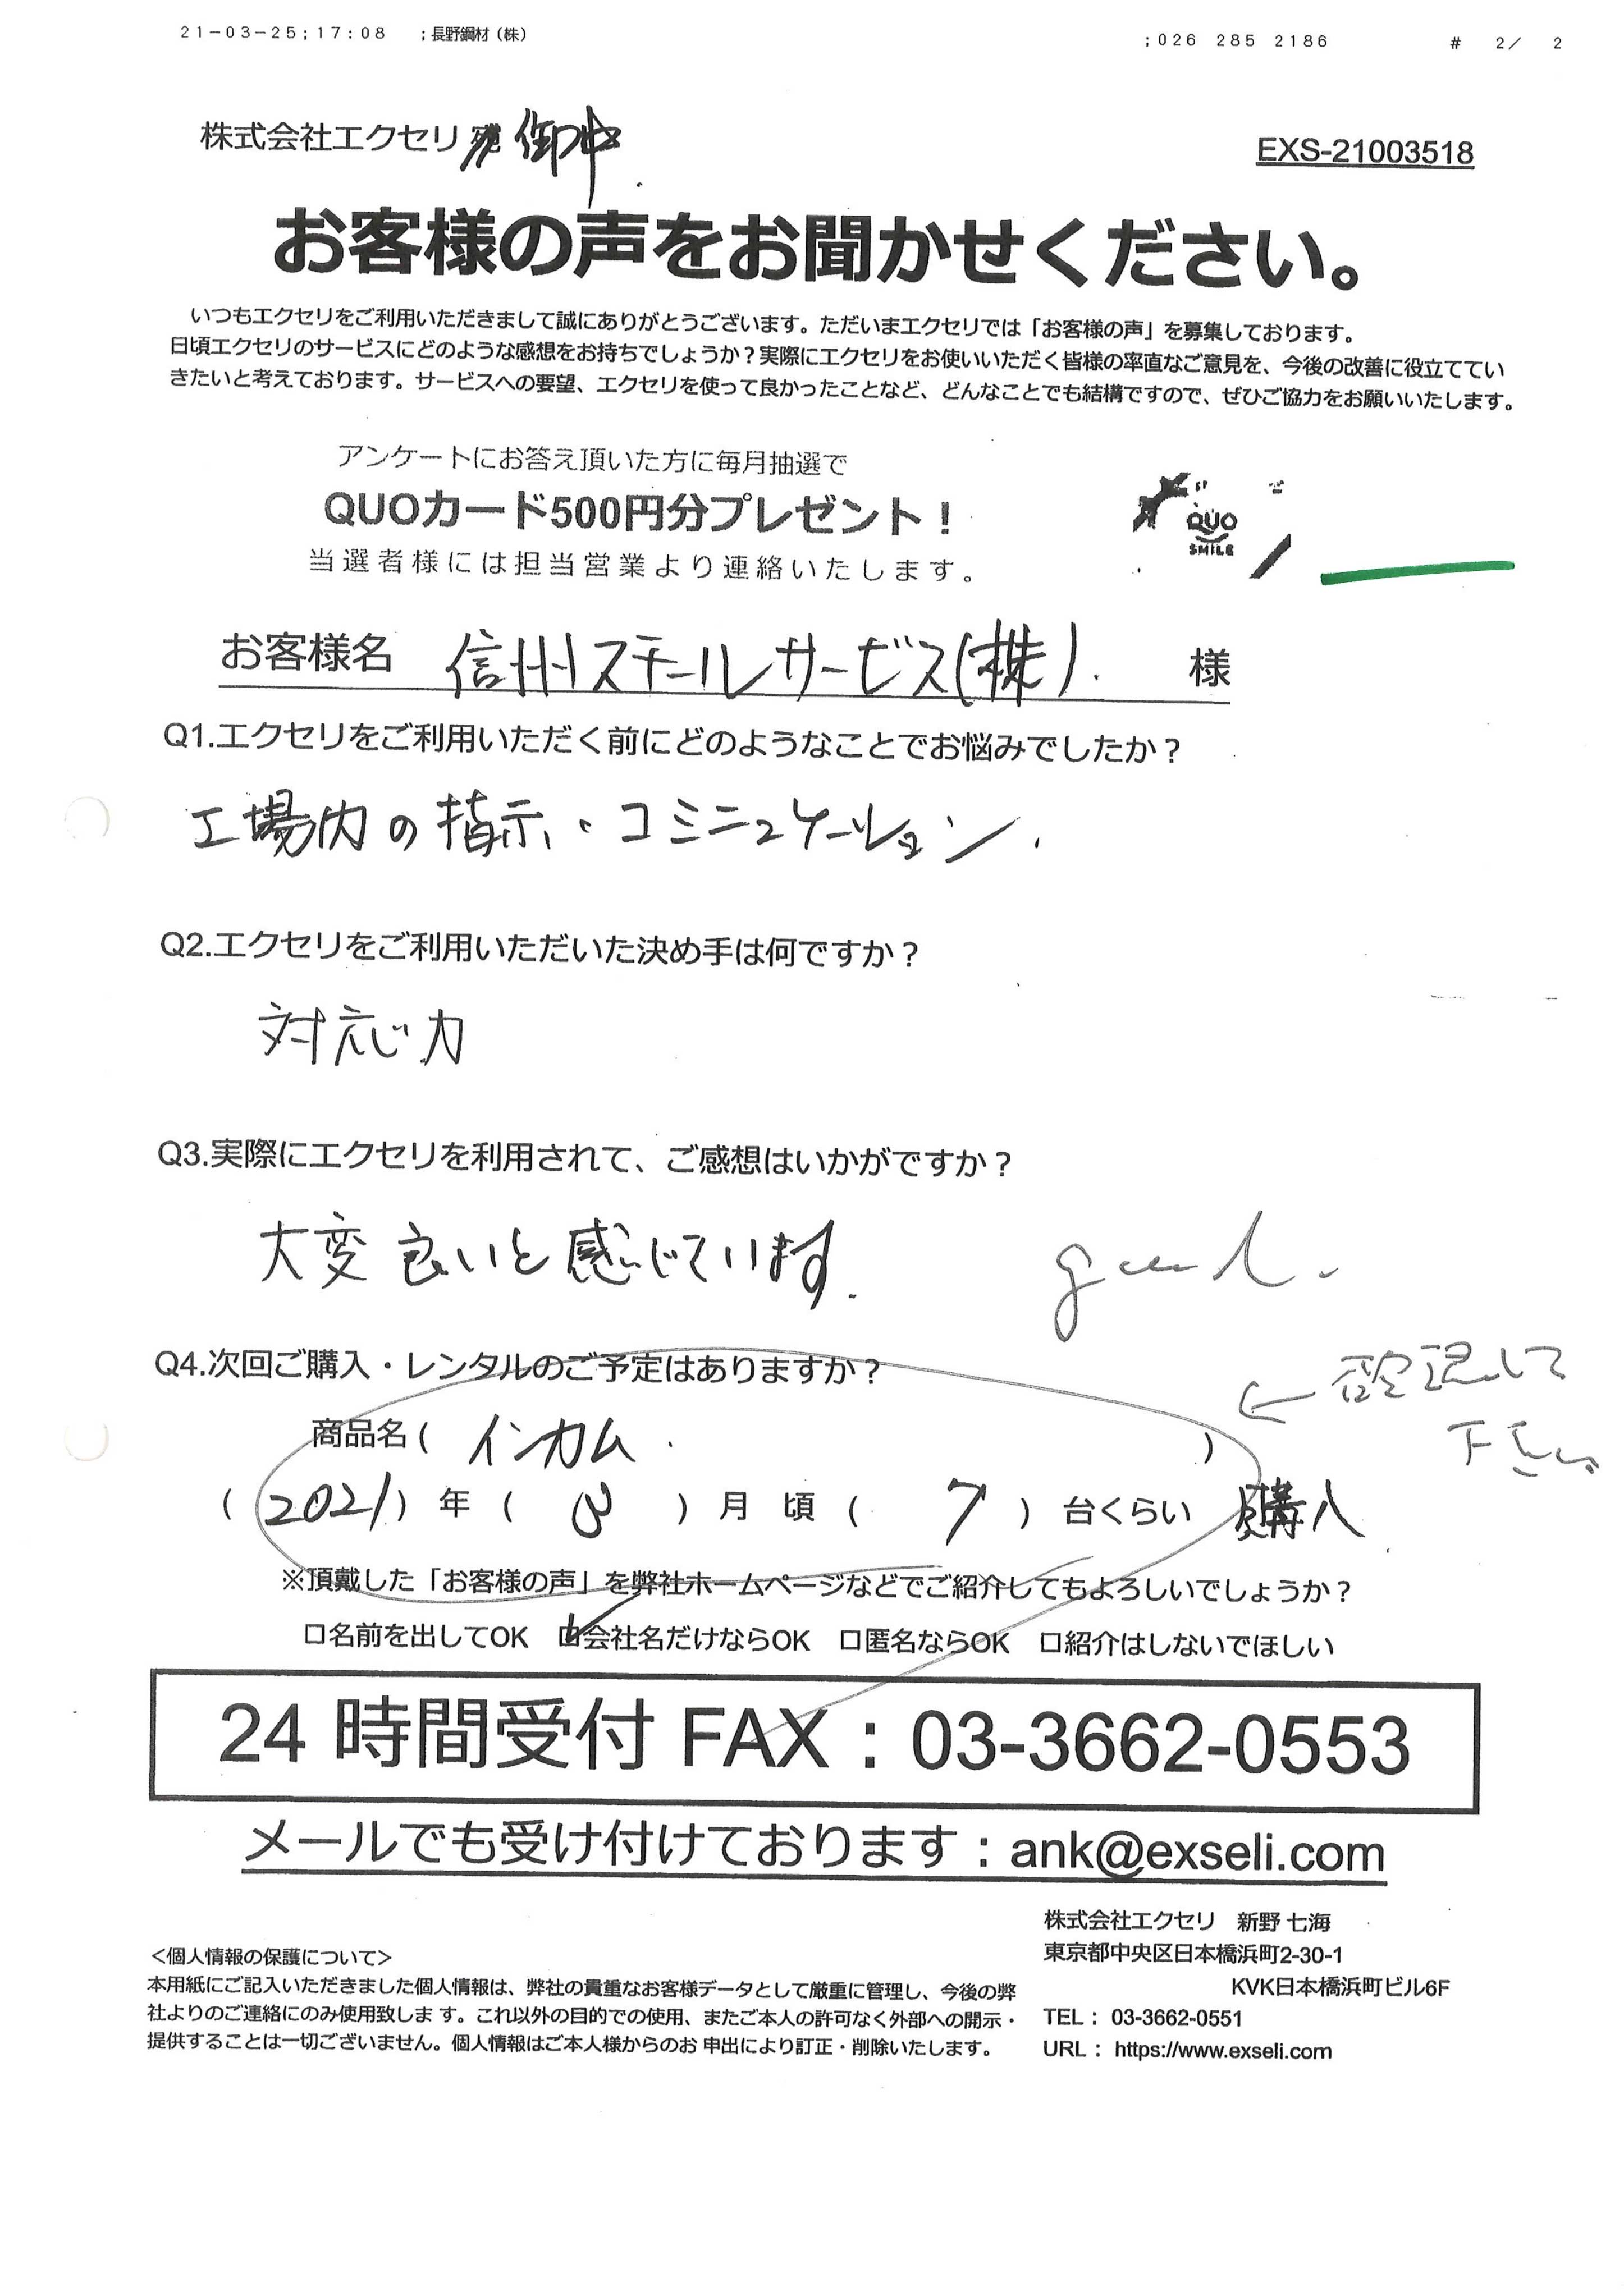 21-03-25;17:08 ;長野鋼材(株) ;026 285 2186 # 2/ 2
株式会社エクセリ 御中
EXS-21003518
お客様の声をお聞かせください。
いつもエクセリをご利用いただきまして誠にありがとうございます。ただいまエクセリでは「お客様の声」を募集しております。
日頃エクセリのサービスにどのような感想をお持ちでしょうか？実際にエクセリをお使いいただく皆様の率直なご意見を、今後の改善に役立ててい
きたいと考えております。サービスへの要望、エクセリを使って良かったことなど、どんなことでも結構ですので、ぜひご協力をお願いいたします。
アンケートにお答え頂いた方に毎月抽選で
QUOカード500円分プレゼント！
当選者様には担当営業より連絡いたします。
QUO
SMILE
お客様名 信州スチールサービス(株). 様
Q1.エクセリをご利用いただく前にどのようなことでお悩みでしたか？
工場内の指示、コミニュケーション.
Q2.エクセリをご利用いただいた決め手は何ですか？
対応力
Q3.実際にエクセリを利用されて、ご感想はいかがですか？
大変良いと感じています.
Q4.次回ご購入・レンタルのご予定はありますか？
← 確認して
下さい
商品名( インカム. )
( 2021 ) 年 ( 8 ) 月 頃 ( 7 ) 台くらい 購入
※頂戴した「お客様の声」を弊社ホームページなどでご紹介してもよろしいでしょうか？
□名前を出してOK ☑会社名だけならOK □匿名ならOK □紹介はしないでほしい
24 時間受付 FAX：03-3662-0553
メールでも受け付けております：ank@exseli.com
<個人情報の保護について>
本用紙にご記入いただきました個人情報は、弊社の貴重なお客様データとして厳重に管理し、今後の弊
社よりのご連絡にのみ使用致しま す。これ以外の目的での使用、またご本人の許可なく外部への開示・
提供することは一切ございません。個人情報はご本人様からのお 申出により訂正・削除いたします。
株式会社エクセリ 新野 七海
東京都中央区日本橋浜町2-30-1
KVK日本橋浜町ビル6F
TEL： 03-3662-0551
URL： https://www.exseli.com